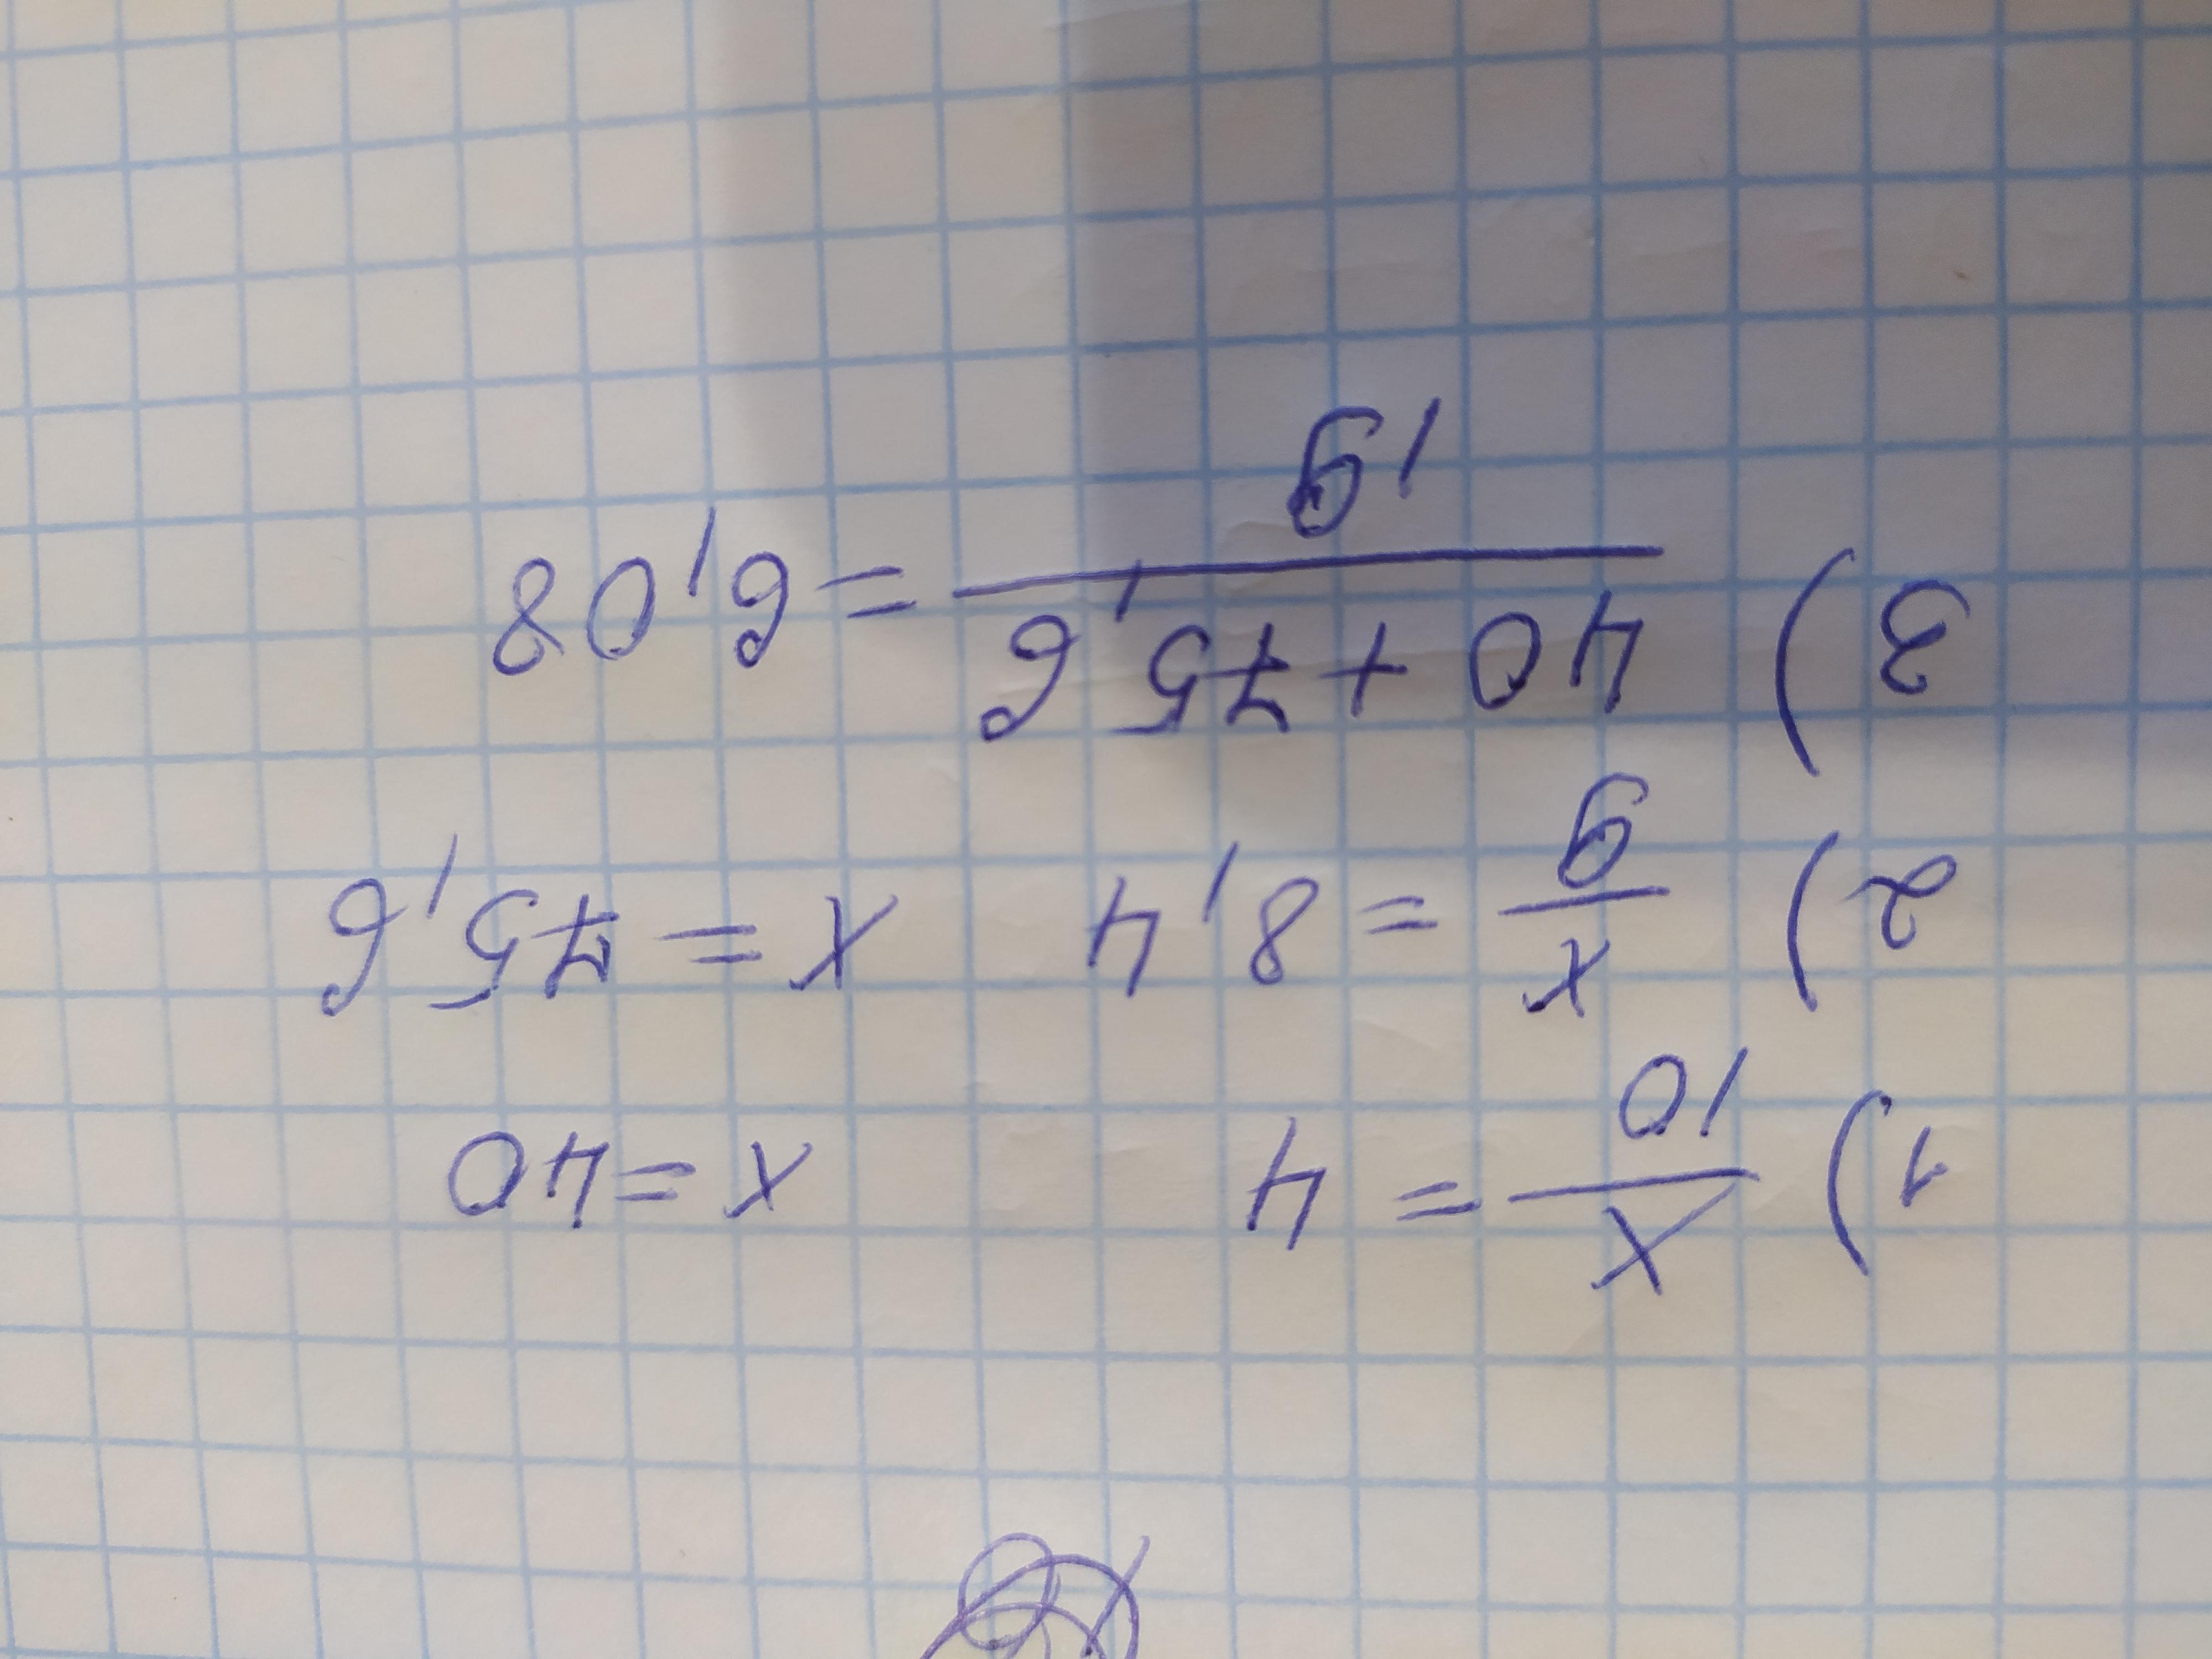 1) x/10 = 4 x = 40
2) x/9 = 8,4 x = 75,6
3) (40 + 75,6)/19 = 6,08